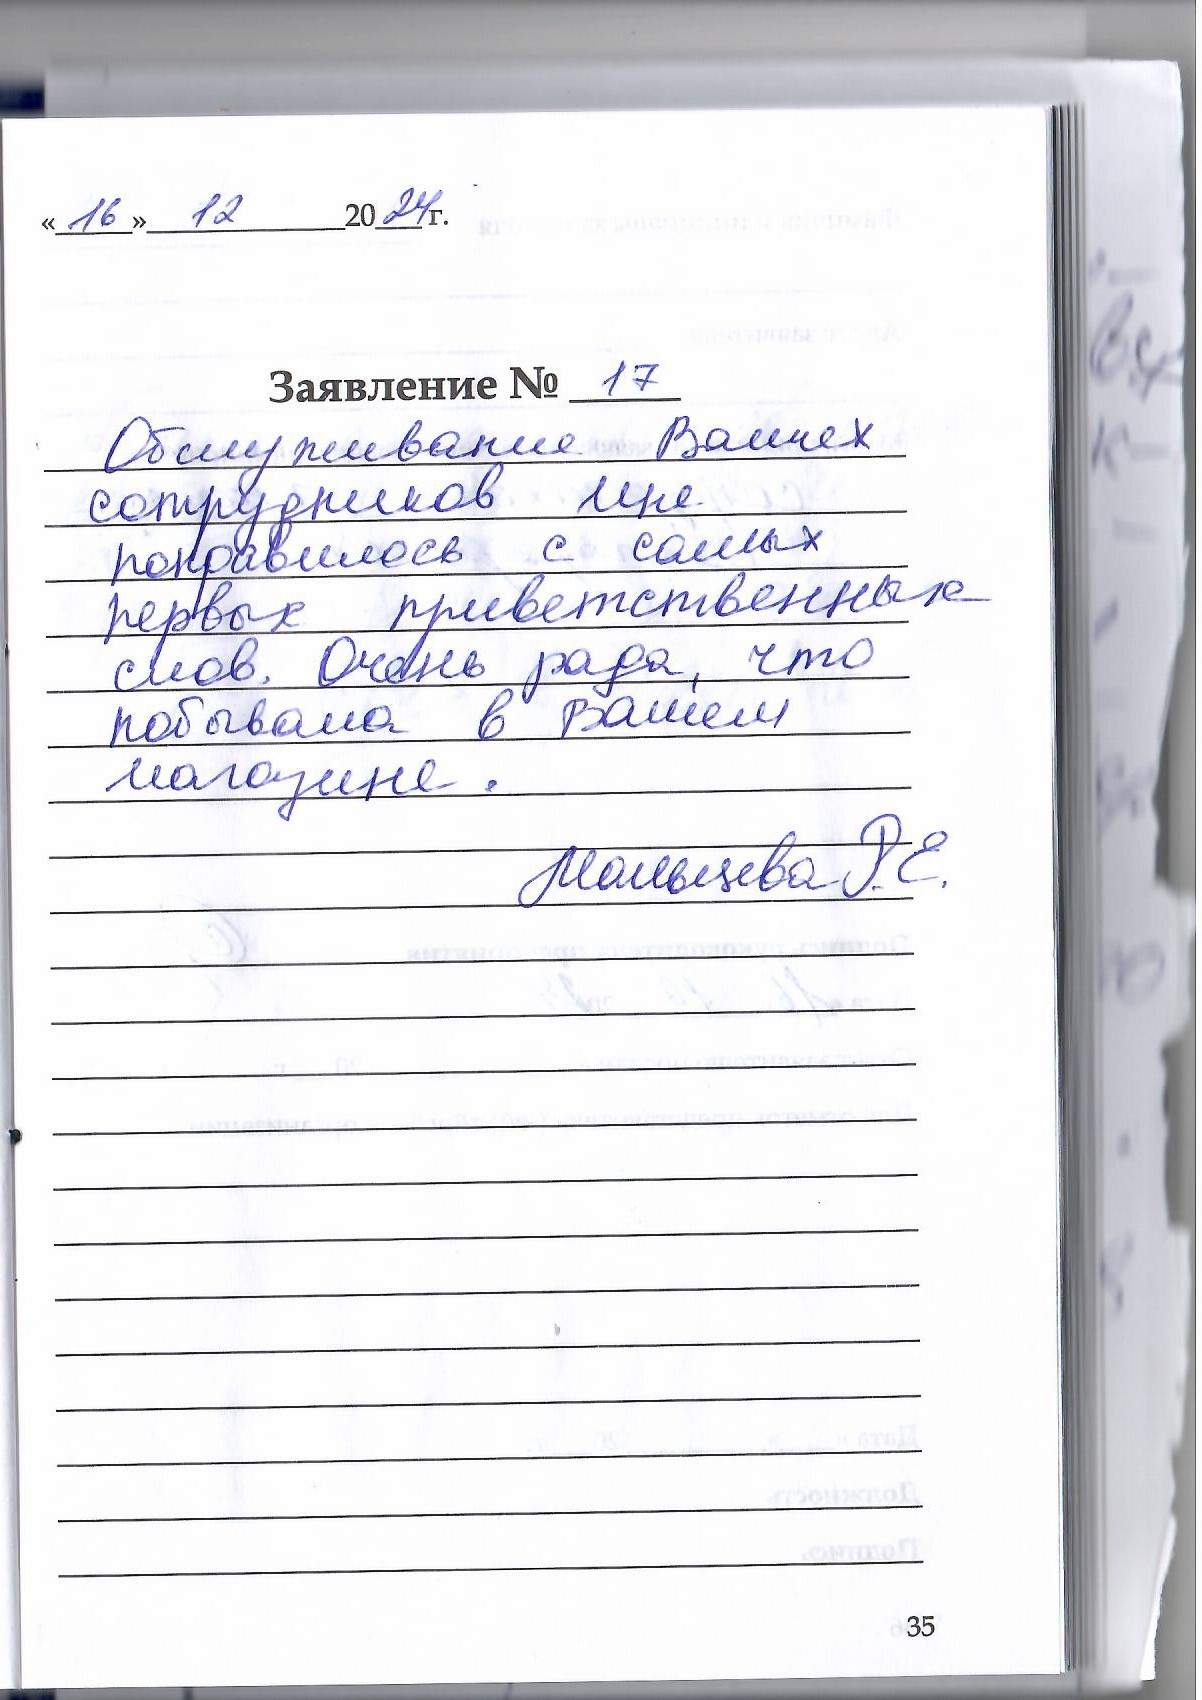 « 16 » 12 2024г.
Заявление № 17
Обслуживание Ваших
сотрудников мне
понравилось с самых
первых приветственных
слов. Очень рада, что
побывала в Вашем
магазине.
Мальцева Р.Е.
35